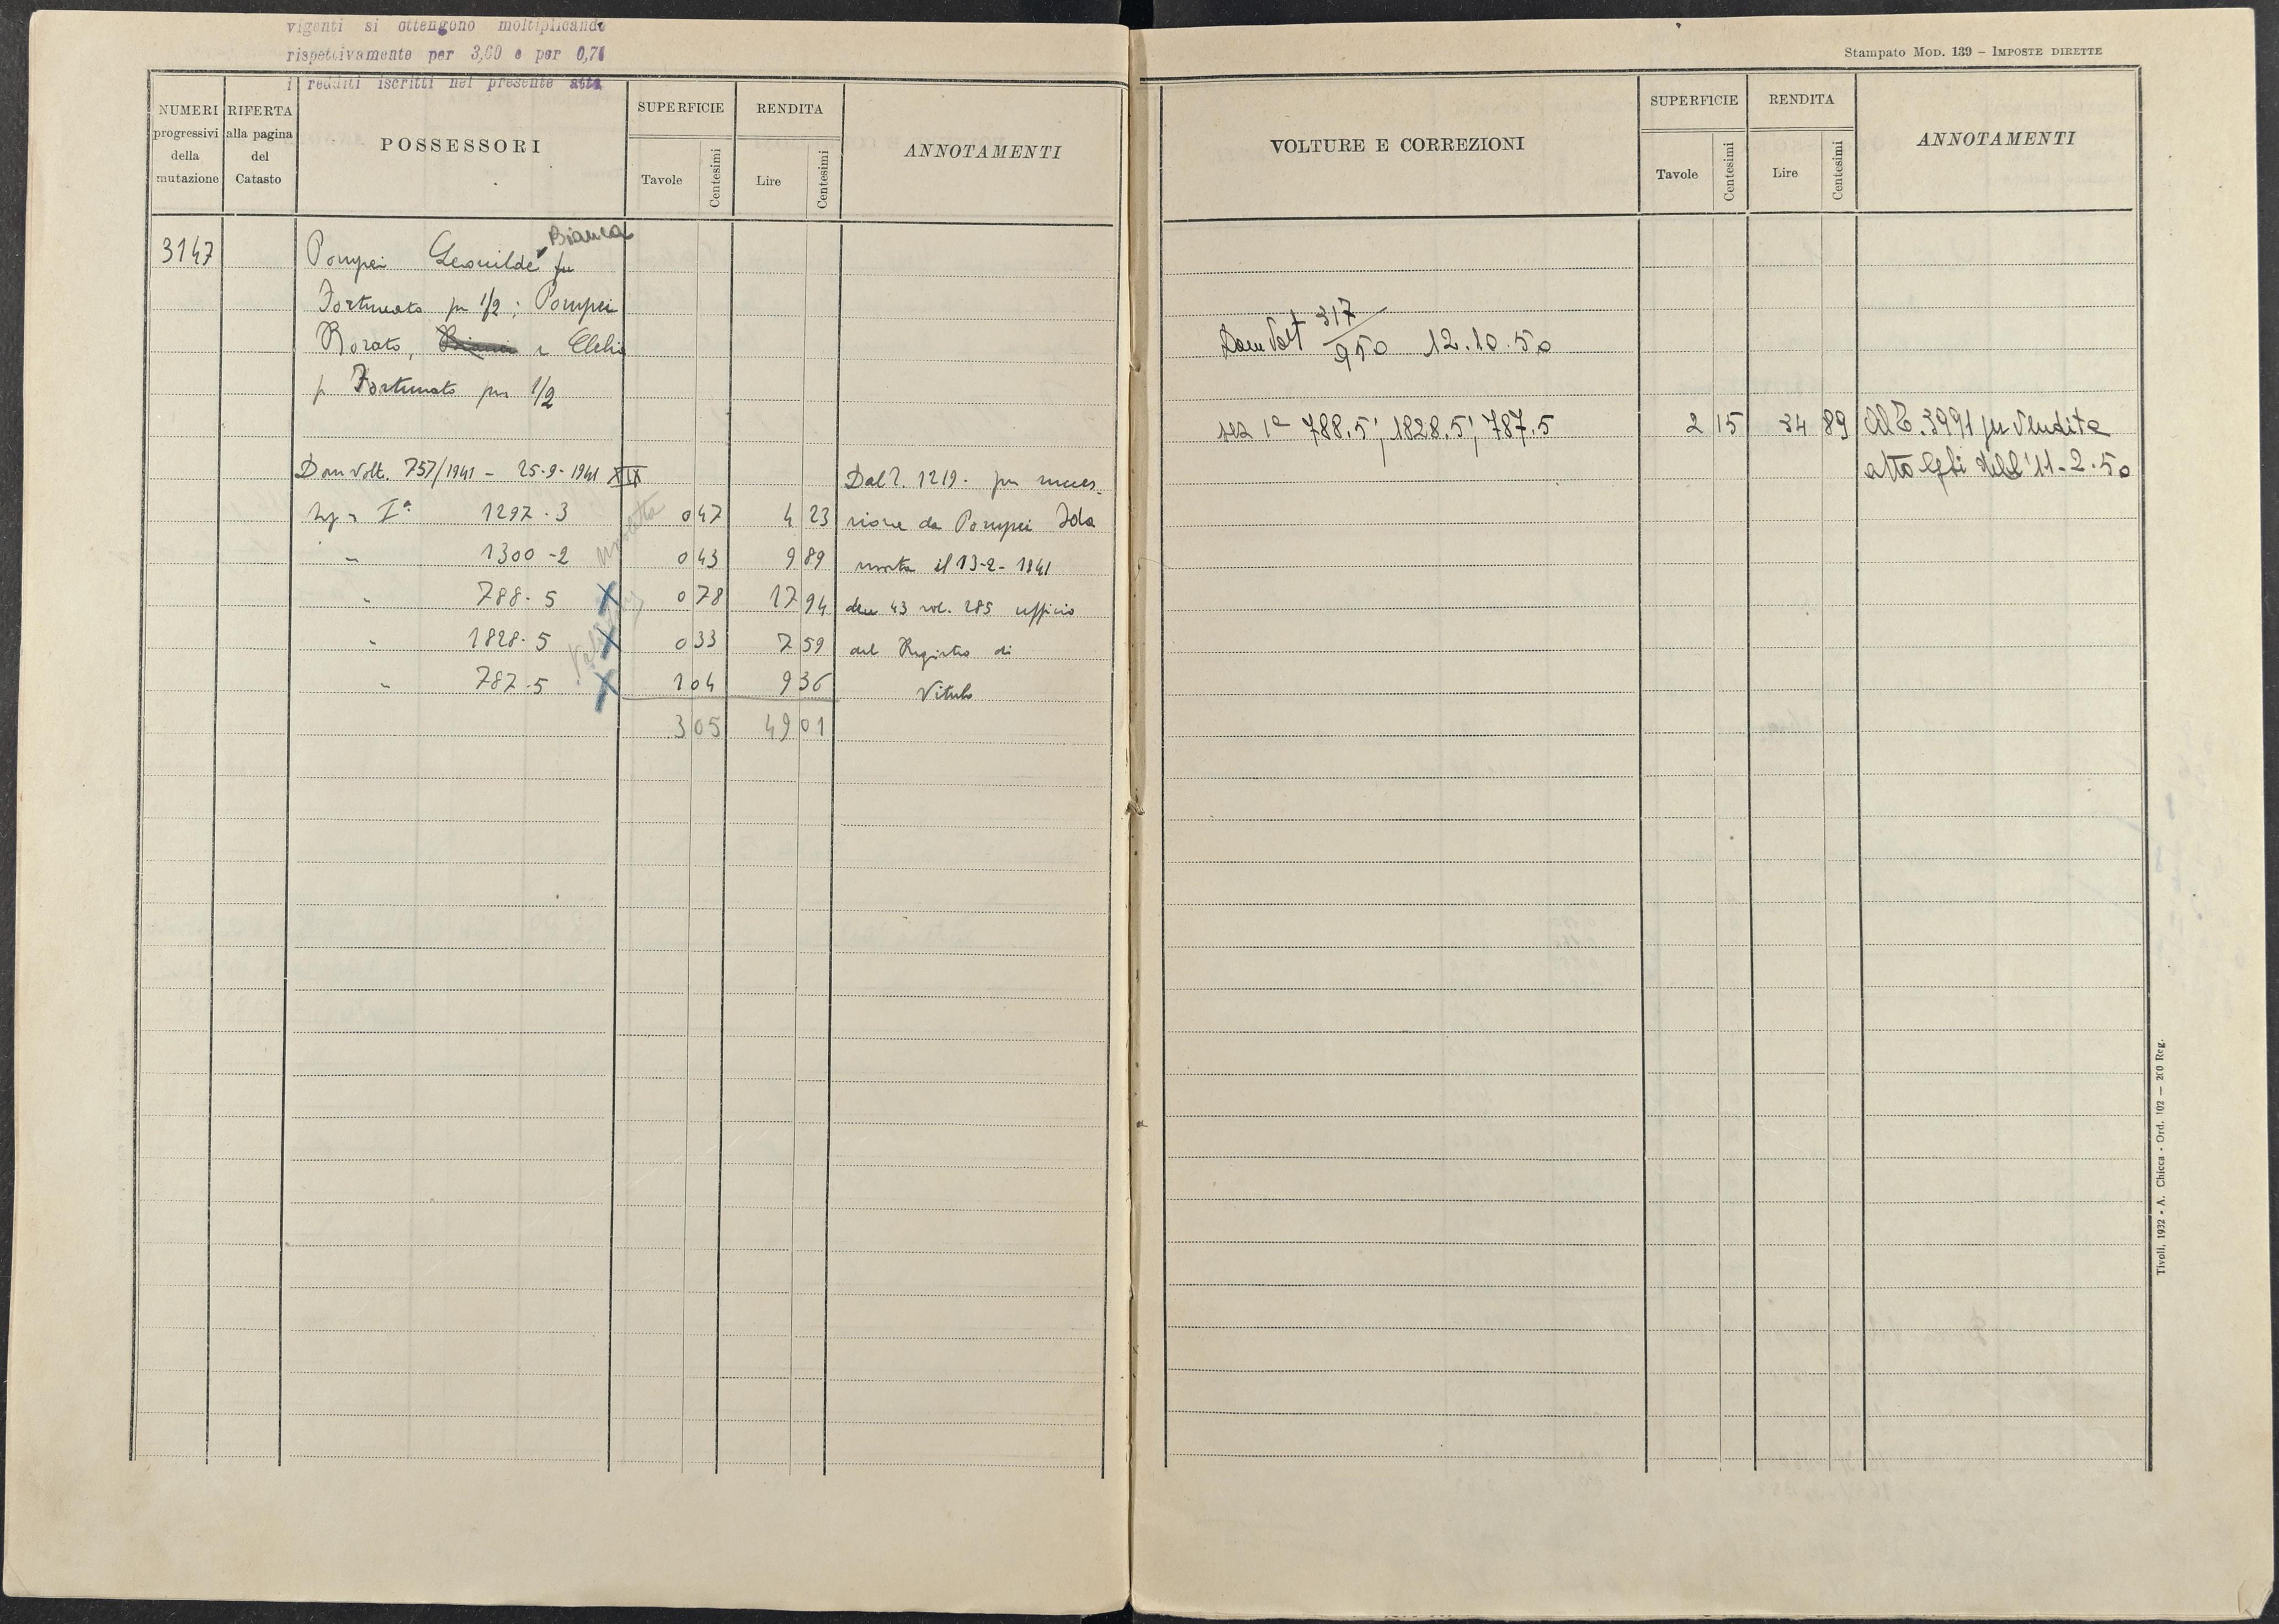 viganti si ottengono moltiplicando
rispettivamente per 3,60 e per 0,71
i redditi iscritti nel presente atto
NUMERI progressivi della mutazione
RIFERTA alla pagina del Catasto
POSSESSORI
SUPERFICIE
Tavole
Centesimi
RENDITA
Lire
Centesimi
ANNOTAMENTI
Bianca
3147 Pompei Leonilde fu
Fortunato per 1/2 ; Pompei
Clelia
p Fortunato per 1/2
Dom Volt. 757/1941 - 25-9-1941 XIX
Dal 2. 1219. per succes-
Iª 1297.3 0 47 4 23 sione da Pompei Ida
" 1300-2 0 43 9 89 morta il 13-2-1941
" 788.5 X 0 78 17 94 den 43 vol. 285 ufficio
" 1828.5 X 0 33 7 59 del Registro di
" 787.5 X 1 04 9 36
3 05 49 01
Stampato MOD. 139 – IMPOSTE DIRETTE
VOLTURE E CORREZIONI
SUPERFICIE
Tavole
Centesimi
RENDITA
Lire
Centesimi
ANNOTAMENTI
Dom Volt 317/950 12.10.50
sez 1ª 788.5; 1828.5; 787.5 2 15 34 89 Al 3991 per Vendita
atto dell'11-2-50
Tivoli, 1932 - A. Chicca - Ord. 102 — 200 Reg.